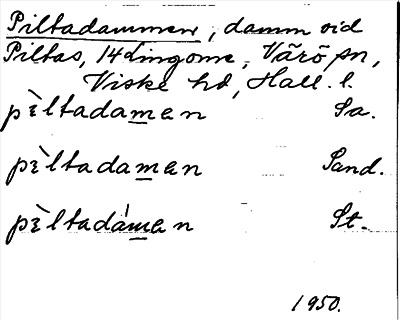 Piltadammen, damm vid
Piltas, 14 Lingome, Värö sn,
Viske hd, Hall. l.
pè̀ltadamen Sa.
pè̀ltadamen Sand.
pè̀ltadámen St.
1950.